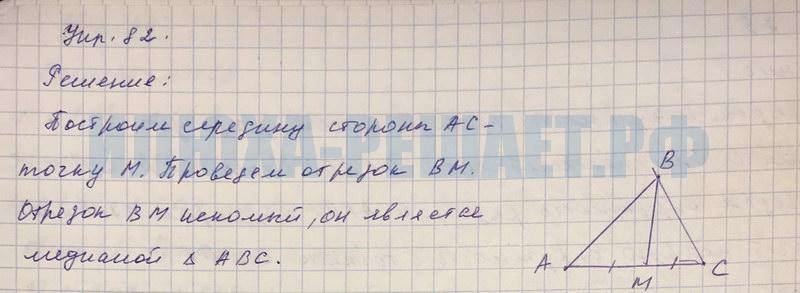 Упр. 82.
Решение:
Построим середину стороны AC -
точку M. Проведем отрезок BM.
Отрезок BM искомый, он является
медианой Δ ABC.
B
A
M
C